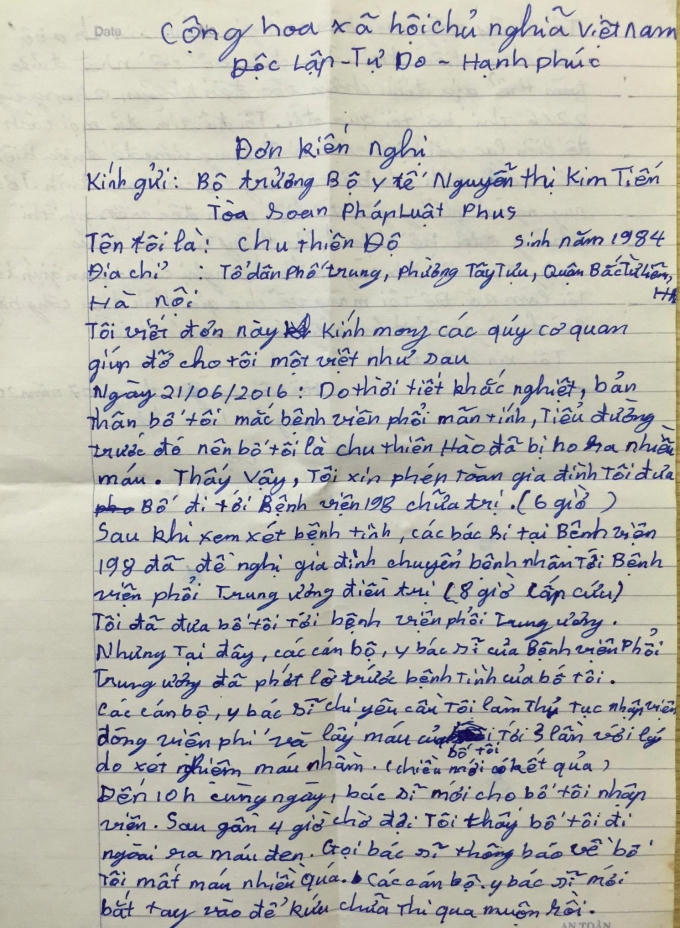 Date
Công hoa xã hội chủ nghĩa Việt Nam
Độc Lập - Tự Do - Hạnh phúc
Đơn kiến nghi
Kính gửi : Bộ trưởng Bộ y tế Nguyễn thị Kim Tiến
Tòa soan Pháp Luật Plus
Tên tôi là : Chu thiên Độ sinh năm 1984
Địa chỉ : Tổ dân Phố trung, phường Tây Tựu, Quận Bắc Từ Liêm, HN
Hà nội
Tôi viết đơn này Kính mong các quý cơ quan
giúp đỡ cho tôi một việt như sau
Ngày 21/06/2016 : Do thời tiết khắc nghiệt, bản
thân bố tôi mắc bệnh viên phổi mãn tính, Tiểu đường
trước đó nên bố tôi là chu thiên Hào đã bị ho ra nhiều
máu. Thấy Vậy, Tôi xin phép toàn gia đình Tôi đưa
Bố đi tới Bệnh viện 198 chữa trị. (6 giờ)
Sau khi xem xét bệnh tình, các bác sĩ tại Bệnh viện
198 đã đề nghị gia đình chuyển bênh nhân Tới Bệnh
viện phổi Trung ương điều trị (8 giờ cấp cứu)
Tôi đã đưa bố tôi tới bệnh viện phổi Trung ương.
Nhưng Tại đây, các cán bộ, y bác sĩ của Bệnh viện Phổi
Trung ương đã phớt lờ trước bệnh tình của bố tôi.
Các cán bộ, y bác sĩ chỉ yêu cầu Tôi làm Thủ tục nhập viện
đóng viện phí và lấy máu của bố tôi Tới 3 lần với lý
do xét nghiệm máu nhầm. (chiều mới có kết quả)
Đến 10h cùng ngày, bác sĩ mới cho bố tôi nhập
viện. Sau gần 4 giờ chờ đợi Tôi thấy bố tôi đi
ngoài ra máu đen. Gọi bác sĩ thông báo về bố
Tôi mất máu nhiều quá. Các cán bộ, y bác sĩ mới
bắt tay vào để kứu chữa thì qua muộn rồi.
AN TOÀN